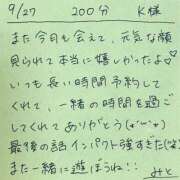 9/27 200分 K様
また今日も会えて、元気な顔
見られて本当に嬉しかったよ♡
いつも長い時間予約して
くれて、一緒の時間を過ご
してくれてありがとう(*´ω`*)
最後の話インパクト強すぎた(笑)
また一緒に遊ぼうね!! みと